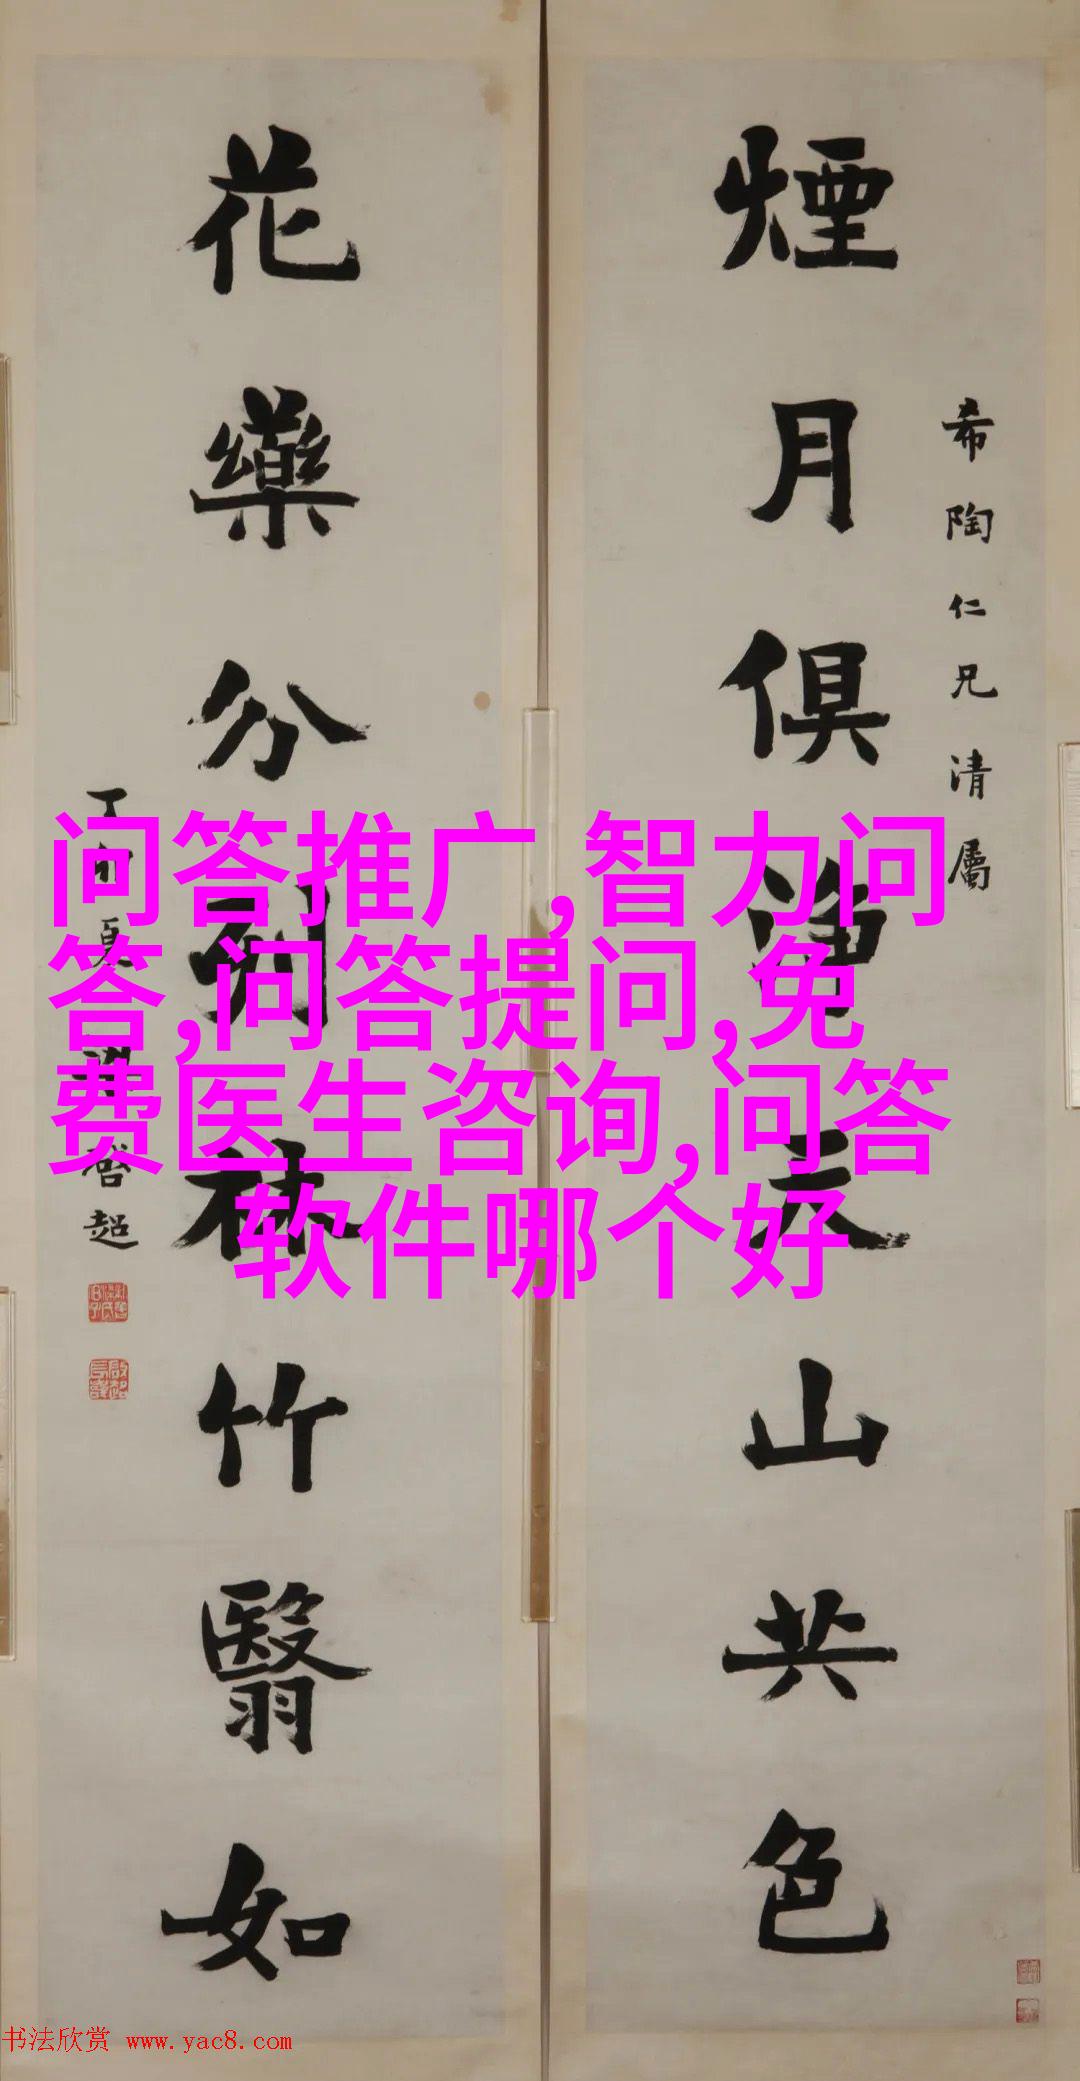 煙月俱净天山共色
希陶仁兄清屬
花藥分列林竹翳如
丁卯夏梁啓超
问答推广,智力问
答,问答提问,免
费医生咨询,问答
软件哪个好
书法欣赏 www.yac8.com